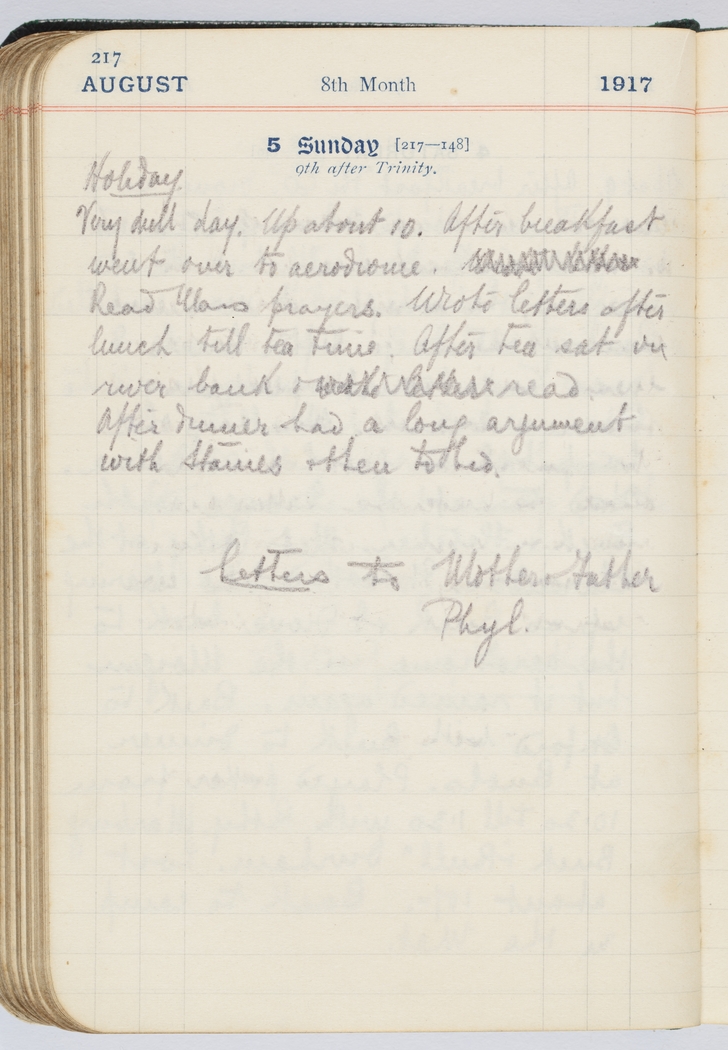 217
AUGUST 8th Month 1917
5 Sunday [217—148]
9th after Trinity.
Holiday
Very dull day. Up about 10. After breakfast
went over to aerodrome.
Read prayers. Wrote letters after
lunch till tea time. After tea sat on
river bank & read.
After dinner had a long argument
with Staines & then to bed.
Letters to Mother & Father
Phyl.